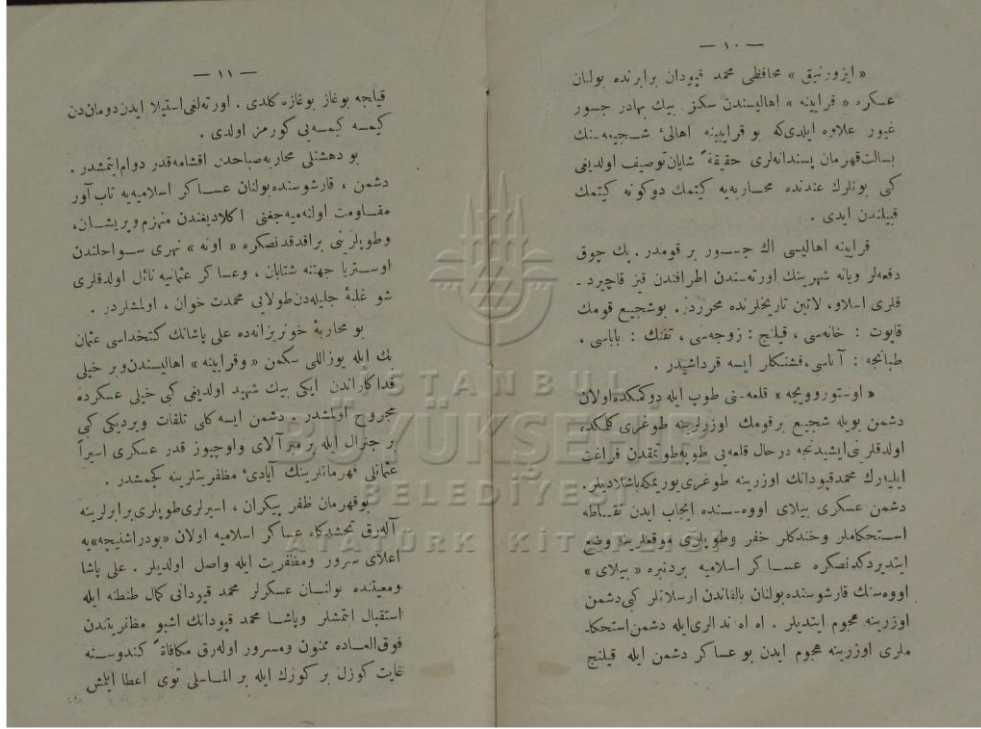 — ١٠ —
« ايزورنيق » محافظى محمد قپودان برابرنده بولنان
عسكره « قراينه » اهاليسندن سكز بيك بهادر جسور
غيور علاوه ايلدى كه بو قراينه اهالئ شجيعه سنك
بسالت قهرمان پسندانه لرى حقيقةً شايان توصيف اولديغى
كبى بونلرك عندنده محاربه يه كيتمك دوكونه كيتمك
قبيلندن ايدى .
قراينه اهاليسى اك جسور بر قومدر . پك چوق
دفعه لر ويانه شهرينك اورته سندن اطرافندن قيز قاچيرد ـ
قلرى اسلاو ، لاتين تاريخلرنده محرردر . بو شجيع قومك
قاپوت : خانه سى ، قيلنج : زوجه سى ، تفنك : باباسى ،
طبانجه : آناسى ، فشنكلر ايسه قرداشيدر .
« اوستوروويجه » قلعه سنى طوپ ايله دوكمكده اولان
دشمن بويله شجيع بر قومك اوزرلرينه طوغرى كلمكده
اولدقلرينى ايشيدنجه درحال قلعه يى طوپه طوتمقدن فراغت
ايليه رك محمد قپودانك اوزرينه طوغرى يوريمكه باشلاديلر .
دشمن عسكرى بيلاى اووه سنده ايجاب ايدن نقاطه
استحكاملر وخندكلر حفر وطوپلرى موقعلرينه وضع
ايتديردكدنصكره عساكر اسلاميه بردنبره « بيلاى »
اووه سنك قارشوسنده بولنان بالقاندن ارسلانلر كبى دشمن
اوزرينه هجوم ايتديلر . اه اه ندالرى ايله دشمن استحكا ـ
ملرى اوزرينه هجوم ايدن بو عساكر دشمن ايله قيلنج
— ١١ —
قيلنجه بوغاز بوغازه كلدى . اورته لغى استيلا ايدن دوماندن
كيمسه كيمسه يى كورمز اولدى .
بو دهشتلى محاربه صباحدن اقشامه قدر دوام ايتمشدر .
دشمن ، قارشوسنده بولنان عساكر اسلاميه يه تاب آور
مقاومت اولنه ميه جغنى اكلاديغندن منهزم وپريشان ،
وطوپلرينى براقدقدنصكره « اونه » نهرى سواحلندن
اوستريا جهتنه شتابان ، وعساكر عثمانيه نائل اولدقلرى
شو غلبهٔ جليله دن طولايى محمدت خوان ، اولمشلردر .
بو محاربهٔ خونريزانه ده على پاشانك كتخداسى عثمان
بك ايله يوز اللى سكمن « وقراينه » اهاليسندن وبر خيلى
فداكاراندن ايكى بيك شهيد اولديغى كبى خيلى عسكرده
مجروح اولمشدر . دشمن ايسه كلى تلفات ويرديكى كبى
بر جنرال ايله بر ميرآلاى واوچيوز قدر عسكرى اسيراً
عثمانلى قهرمانلرينك آيادئ مظفريتلرينه كچمشدر .
بو قهرمان ظفر پيكران ، اسيرلرى طوپلرى برابرلرينه
آله رق تحشدكاه عساكر اسلاميه اولان « بودراشنيچه » يه
اعلاى سرور ومظفريت ايله واصل اولديلر . على پاشا
ومعيتنده بولنان عسكرلر محمد قپودانى كمال طنطنه ايله
استقبال ايتمشلر وپاشا محمد قپودانك اشبو مظفريتندن
فوق العاده ممنون ومسرور اوله رق مكافاةً كندوسنه
غايت كوزل بر كورك ايله بر الماسلى توى اعطا ايلمش
ISTANBUL
BÜYÜKŞEHİR
BELEDİYESİ
ATATÜRK KİTAPLIĞI